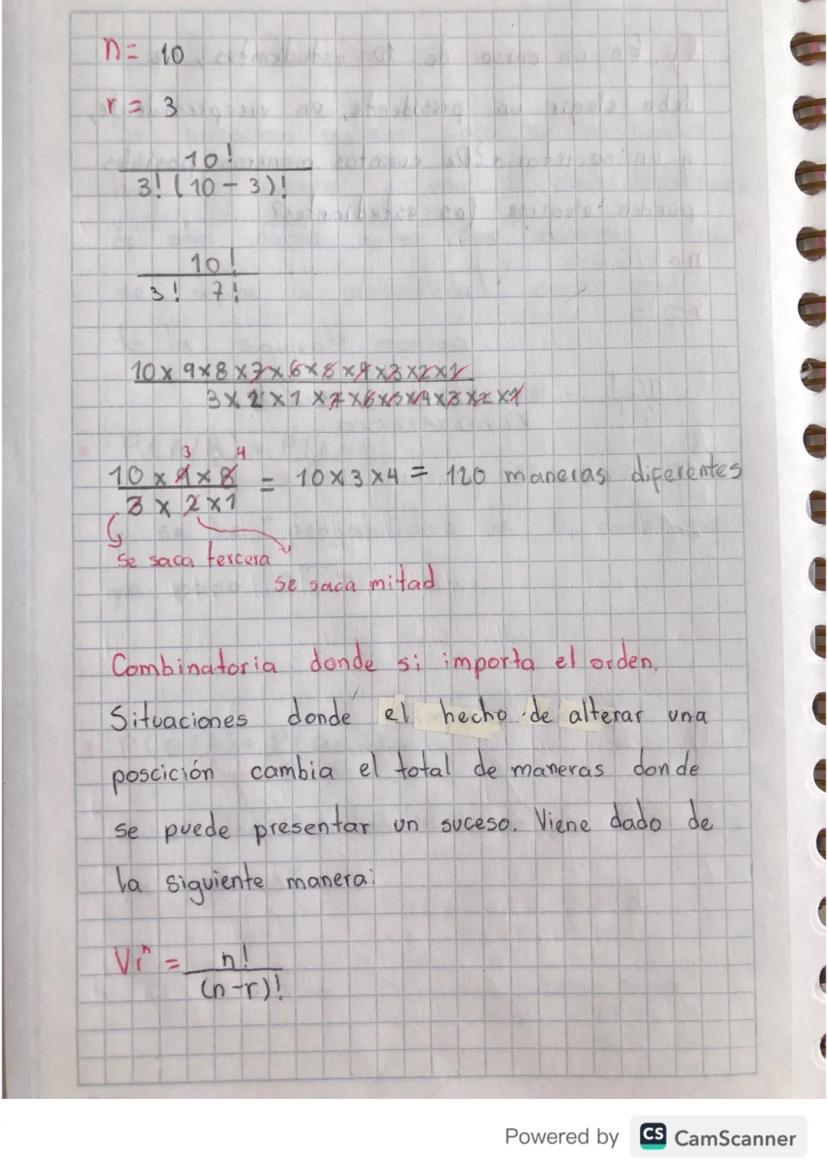 n = 10
r = 3
10!
3! (10 - 3)!
10!
3! 7!
10 x 9 x 8 x 7 x 6 x 5 x 4 x 3 x 2 x 1
3 x 2 x 1 x 7 x 6 x 5 x 4 x 3 x 2 x 1
3 4
10 x 9 x 8 = 10 x 3 x 4 = 120 maneras diferentes
3 x 2 x 1
se saca tercera
se saca mitad
Combinatoria donde si importa el orden.
Situaciones donde el hecho de alterar una
poscición cambia el total de maneras donde
se puede presentar un suceso. Viene dado de
la siguiente manera:
Vrⁿ = n!
(n-r)!
Powered by CS CamScanner